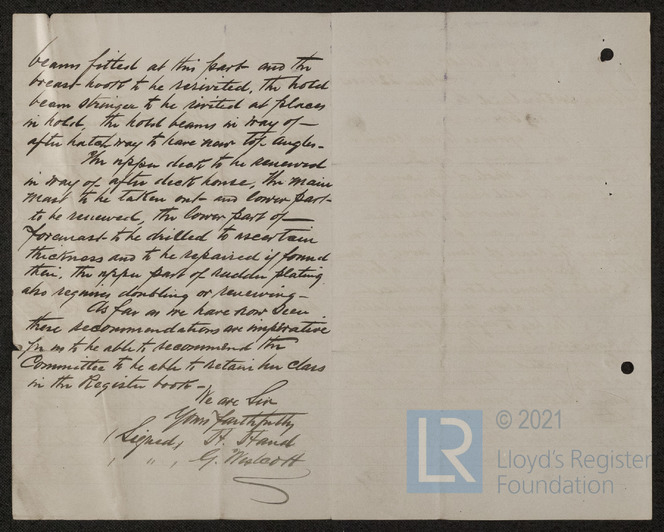 beams fitted at this part and the
breast hook to be reriveted, the hold
beam stringer to be rivited at places
in hold, the hold beams in way of —
after hatch way to have new top angles -
The upper deck to be renewed
in way of after deck house, the main
mast to be taken out and lower part
to be renewed, the lower part of —
foremast to be drilled to ascertain
thickness and to be repaired if found
thin, the upper part of rudder plating
also requires doubling or renewing -
As far as we have now seen
these recommendations are imperative
for us to be able to recommend the
Committee to be able to retain her class
in the Register book -
We are Sir
Yours faithfully
(Signed, H. Hand
, " , G. Wescott
LR
© 2021
Lloyd's Register
Foundation